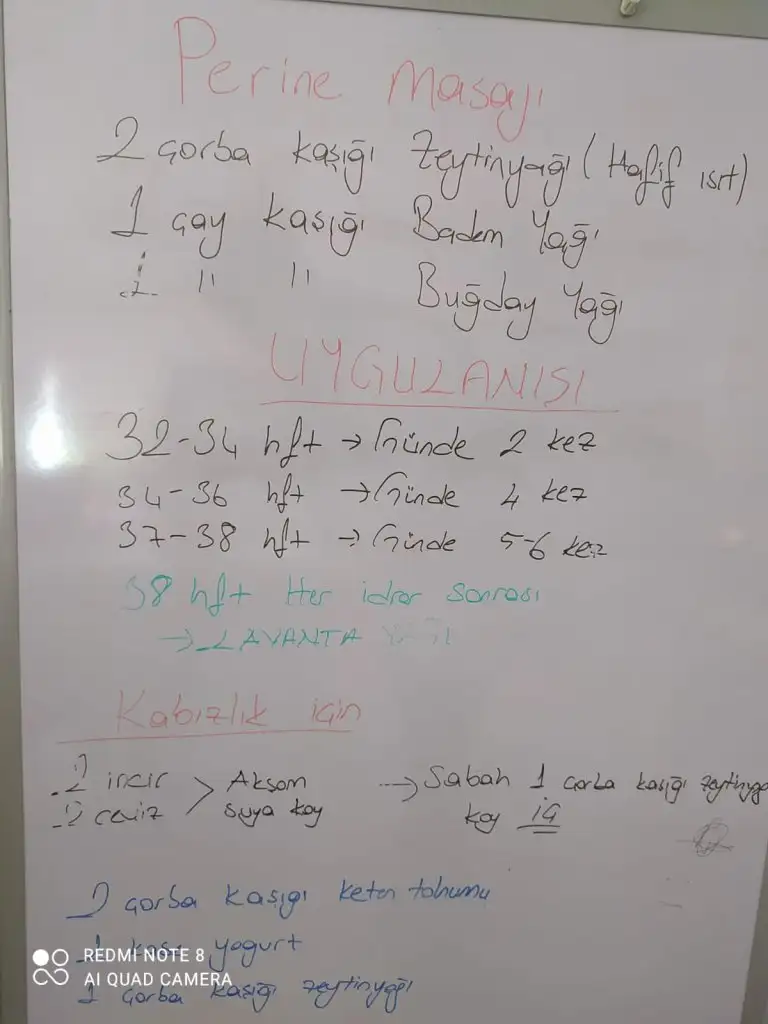 Perine masajı
2 çorba kaşığı Zeytinyağı (Hafif ısıt)
1 çay kaşığı Badem Yağı
1 " " Buğday Yağı
UYGULANISI
32-34 hft → Günde 2 kez
34-36 hft → Günde 4 kez
37-38 hft → Günde 5-6 kez
38 hft Her idrar sonrası
→ LAVANTA YAĞI
Kabızlık için
2 incir > Akşam → Sabah 1 çorba kaşığı zeytinyağ
2 ceviz suya koy koy iç
çorba kaşığı keten tohumu
1 kase yogurt
1 çorba kaşığı zeytinyağı
REDMI NOTE 8
AI QUAD CAMERA